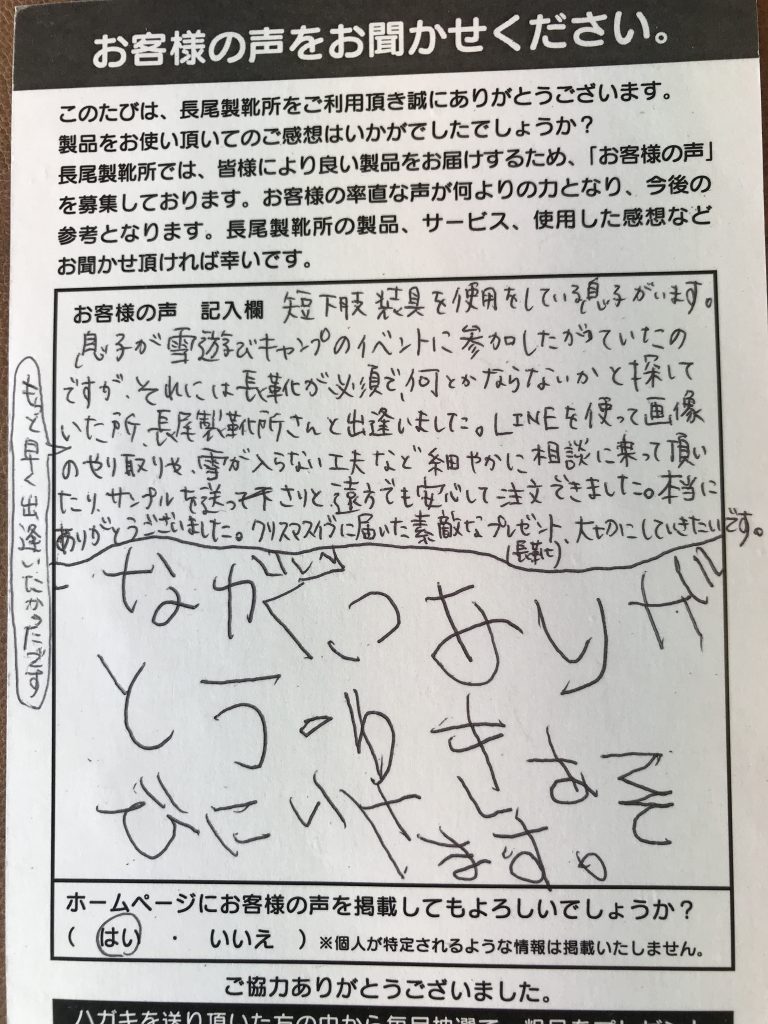 お客様の声をお聞かせください。
このたびは、長尾製靴所をご利用頂き誠にありがとうございます。
製品をお使い頂いてのご感想はいかがでしたでしょうか?
長尾製靴所では、皆様により良い製品をお届けするため、「お客様の声」
を募集しております。お客様の率直な声が何よりの力となり、今後の
参考となります。長尾製靴所の製品、サービス、使用した感想など
お聞かせ頂ければ幸いです。
お客様の声 記入欄 短下肢装具を使用をしている息子がいます。
息子が雪遊びキャンプのイベントに参加したがっていたの
ですが、それには長靴が必須で、何とかならないかと探して
いた所、長尾製靴所さんと出逢いました。LINEを使って画像
のやり取りや、雪が入らない工夫など細やかに相談に乗って頂い
たり、サンプルを送って下さりと、遠方でも安心して注文できました。本当に
ありがとうございました。クリスマスイヴに届いた素敵なプレゼント、大切にしていきたいです。
(長靴)
もっと早く出逢いたかったです
ながぐつありが
とう。ゆきあそ
びにいけ
ます。
ホームページにお客様の声を掲載してもよろしいでしょうか?
( はい ・ いいえ ) ※個人が特定されるような情報は掲載いたしません。
ご協力ありがとうございました。
ハガキを送り頂いた方の中から毎月抽選で、粗品をプレゼント